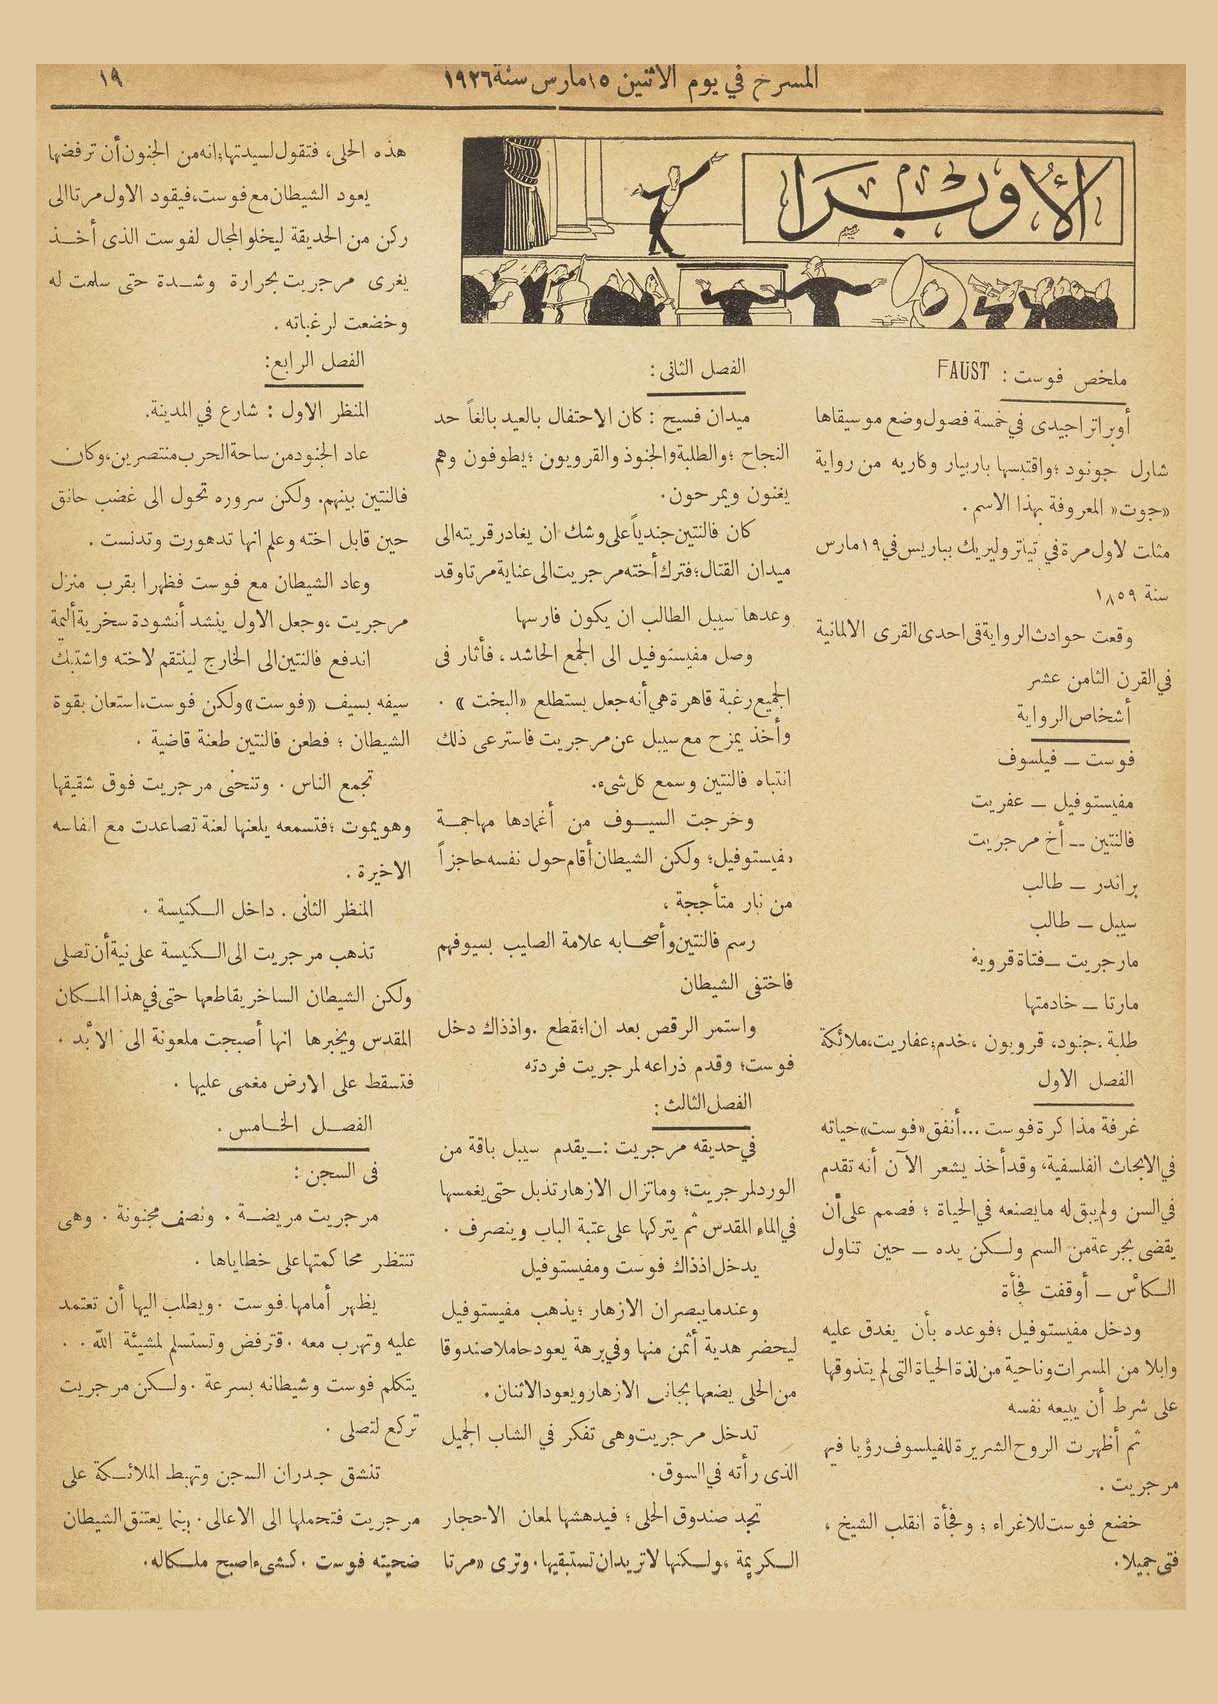 المسرح في يوم الاثنين ١٥ مارس سنة ١٩٢٦
١٩
الأوبرا
ملخص فوست : FAUST
أوبرا تراجيدى في خمسة فصول وضع موسيقاها
شارل جونود ؛ واقتبسها باربيار وكاريه من رواية
«جوت» المعروفة بهذا الاسم .
مثلت لاول مرة في تياترو ليريك بباريس في ١٩ مارس
سنة ١٨٥٩
وقعت حوادث الرواية فى احدى القرى الالمانية
في القرن الثامن عشر
أشخاص الرواية
فوست ــ فيلسوف
مفيستوفيل ــ عفريت
فالنتين ــ أخ مرجريت
براندر ــ طالب
سيبل ــ طالب
مارجريت ــ فتاة قروية
مارتا ــ خادمتها
طلبة ، جنود، قرويون ، خدم ؛ عفاريت، ملائكة
الفصل الاول
غرفة مذاكرة فوست ... أنفق «فوست» حياته
في الابحاث الفلسفية، وقد أخذ يشعر الآن أنه تقدم
في السن ولم يبق له ما يصنعه في الحياة ؛ فصمم على أن
يقضى بجرعة من السم ولكن يده ــ حين تناول
الكأس ــ أوقفت فجأة
ودخل مفيستوفيل ؛ فوعده بأن يغدق عليه
وابلا من المسرات وناحية من لذة الحياة التى لم يتذوقها
على شرط أن يبيعه نفسه
ثم أظهرت الروح الشريرة للفيلسوف رؤيا فيها
مرجريت .
خضع فوست للاغراء ؛ وفجأة انقلب الشيخ ،
فتى جميلا .
الفصل الثانى :
ميدان فسيح : كان الاحتفال بالعيد بالغاً حد
النجاح ؛ والطلبة والجنود والقرويون ؛ يطوفون وهم
يغنون ويمرحون.
كان فالنتين جندياً على وشك ان يغادر قريته الى
ميدان القتال ؛ فترك أخته مرجريت الى عناية مرتا وقد
وعدها سيبل الطالب ان يكون فارسها
وصل مفيستوفيل الى الجمع الحاشد ، فأثار فى
الجميع رغبة قاهرة هي أنه جعل يستطلع «البخت» .
وأخذ يمزح مع سيبل عن مرجريت فاسترعى ذلك
انتباه فالنتين وسمع كل شىء.
وخرجت السيوف من أغمادها مهاجمة
مفيستوفيل؛ ولكن الشيطان أقام حول نفسه حاجزاً
من نار متأججة ،
رسم فالنتين وأصحابه علامة الصليب بسيوفهم
فاختفى الشيطان
واستمر الرقص بعد ان انقطع . واذذاك دخل
فوست ؛ وقدم ذراعه لمرجريت فردته
الفصل الثالث :
في حديقه مرجريت :ــ يقدم سيبل باقة من
الورد لمرجريت ؛ وما تزال الازهار تذبل حتى يغمسها
في الماء المقدس ثم يتركها على عتبة الباب وينصرف .
يدخل اذذاك فوست ومفيستوفيل
وعندما يبصران الازهار ؛ يذهب مفيستوفيل
ليحضر هدية أثمن منها وفي برهة يعود حاملا صندوقا
من الحلى يضعها بجانب الازهار ويعود الاثنان .
تدخل مرجريت وهى تفكر في الشاب الجميل
الذى رأته في السوق .
تجد صندوق الحلى ؛ فيدهشها لمعان الاحجار
الكريمة ؛ ولكنها لا تريد ان تستبقيها . وترى «مرتا
هذه الحلى، فتقول لسيدتها ؛ انه من الجنون أن ترفضها
يعود الشيطان مع فوست، فيقود الاول مرتا الى
ركن من الحديقة ليخلو المجال لفوست الذى أخذ
يغرى مرجريت بحرارة وشدة حتى سلمت له
وخضعت لرغباته .
الفصل الرابع :
المنظر الاول : شارع في المدينة .
عاد الجنود من ساحة الحرب منتصرين، وكان
فالنتين بينهم. ولكن سروره تحول الى غضب حانق
حين قابل اخته وعلم انها تدهورت وتدنست .
وعاد الشيطان مع فوست فظهرا بقرب منزل
مرجريت ، وجعل الاول ينشد أنشودة سخرية أليمة
اندفع فالنتين الى الخارج لينتقم لاخته واشتبك
سيفه بسيف «فوست» ولكن فوست، استعان بقوة
الشيطان ؛ فطعن فالنتين طعنة قاضية .
تجمع الناس . وتنحنى مرجريت فوق شقيقها
وهو يموت ؛ فتسمعه يلعنها لعنة تصاعدت مع انفاسه
الاخيرة .
المنظر الثانى . داخل الكنيسة .
تذهب مرجريت الى الكنيسة على نية أن تصلى
ولكن الشيطان الساخر يقاطعها حتى في هذا المكان
المقدس ويخبرها انها أصبحت ملعونة الى الأبد .
فتسقط على الارض مغمى عليها .
الفصل الخامس .
فى السجن :
مرجريت مريضة . ونصف مجنونة . وهى
تنتظر محاكمتها على خطاياها .
يظهر أمامها فوست . ويطلب اليها أن تعتمد
عليه وتهرب معه . فترفض وتستسلم لمشيئة الله . .
يتكلم فوست وشيطانه بسرعة . ولكن مرجريت
تركع لتصلى .
تنشق جدران السجن وتهبط الملائكة على
مرجريت فتحملها الى الاعالى . بينما يعتنق الشيطان
ضحيته فوست . كشىء اصبح ملكاله .